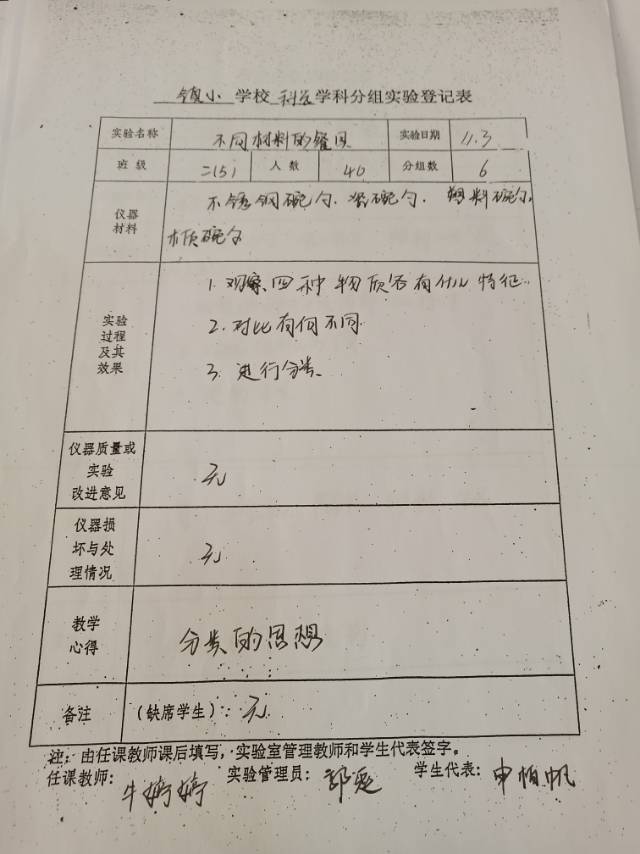 镇小 学校 科学 学科分组实验登记表
实验名称 不同材料的餐具 实验日期 11.3
班 级 二(5) 人 数 40 分组数 6
仪器材料 不锈钢碗勺、瓷碗勺、塑料碗勺、
木质碗勺
实验过程及其效果
1. 观察四种物质各有什么特征.
2. 对比有何不同.
3. 进行分类.
仪器质量或实验改进意见 无
仪器损坏与处理情况 无
教学心得 分类的思想
备注 (缺席学生):无
注:由任课教师课后填写,实验室管理教师和学生代表签字。
任课教师:牛婷婷 实验管理员: 学生代表:申柏帆